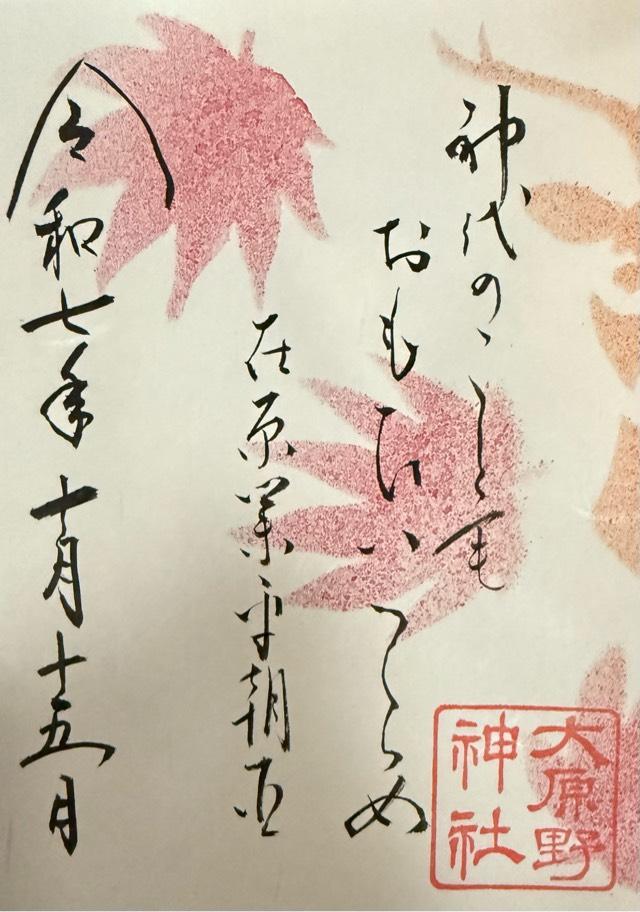 神代のことも
おもひいつらめ
在原業平朝臣
令和七年十月十五日
大原野
神社